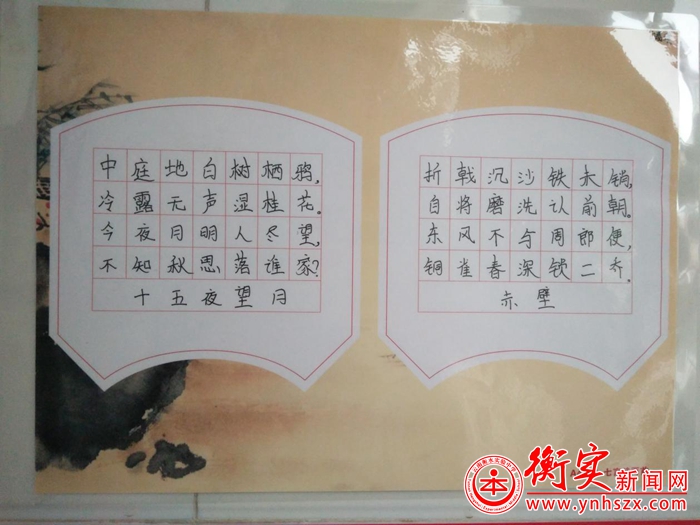 中庭地白树栖鸦，
冷露无声湿桂花。
今夜月明人尽望，
不知秋思落谁家？
十五夜望月
折戟沉沙铁未销，
自将磨洗认前朝。
东风不与周郎便，
铜雀春深锁二乔。
赤壁
衡实新闻网
www.ynhszx.com